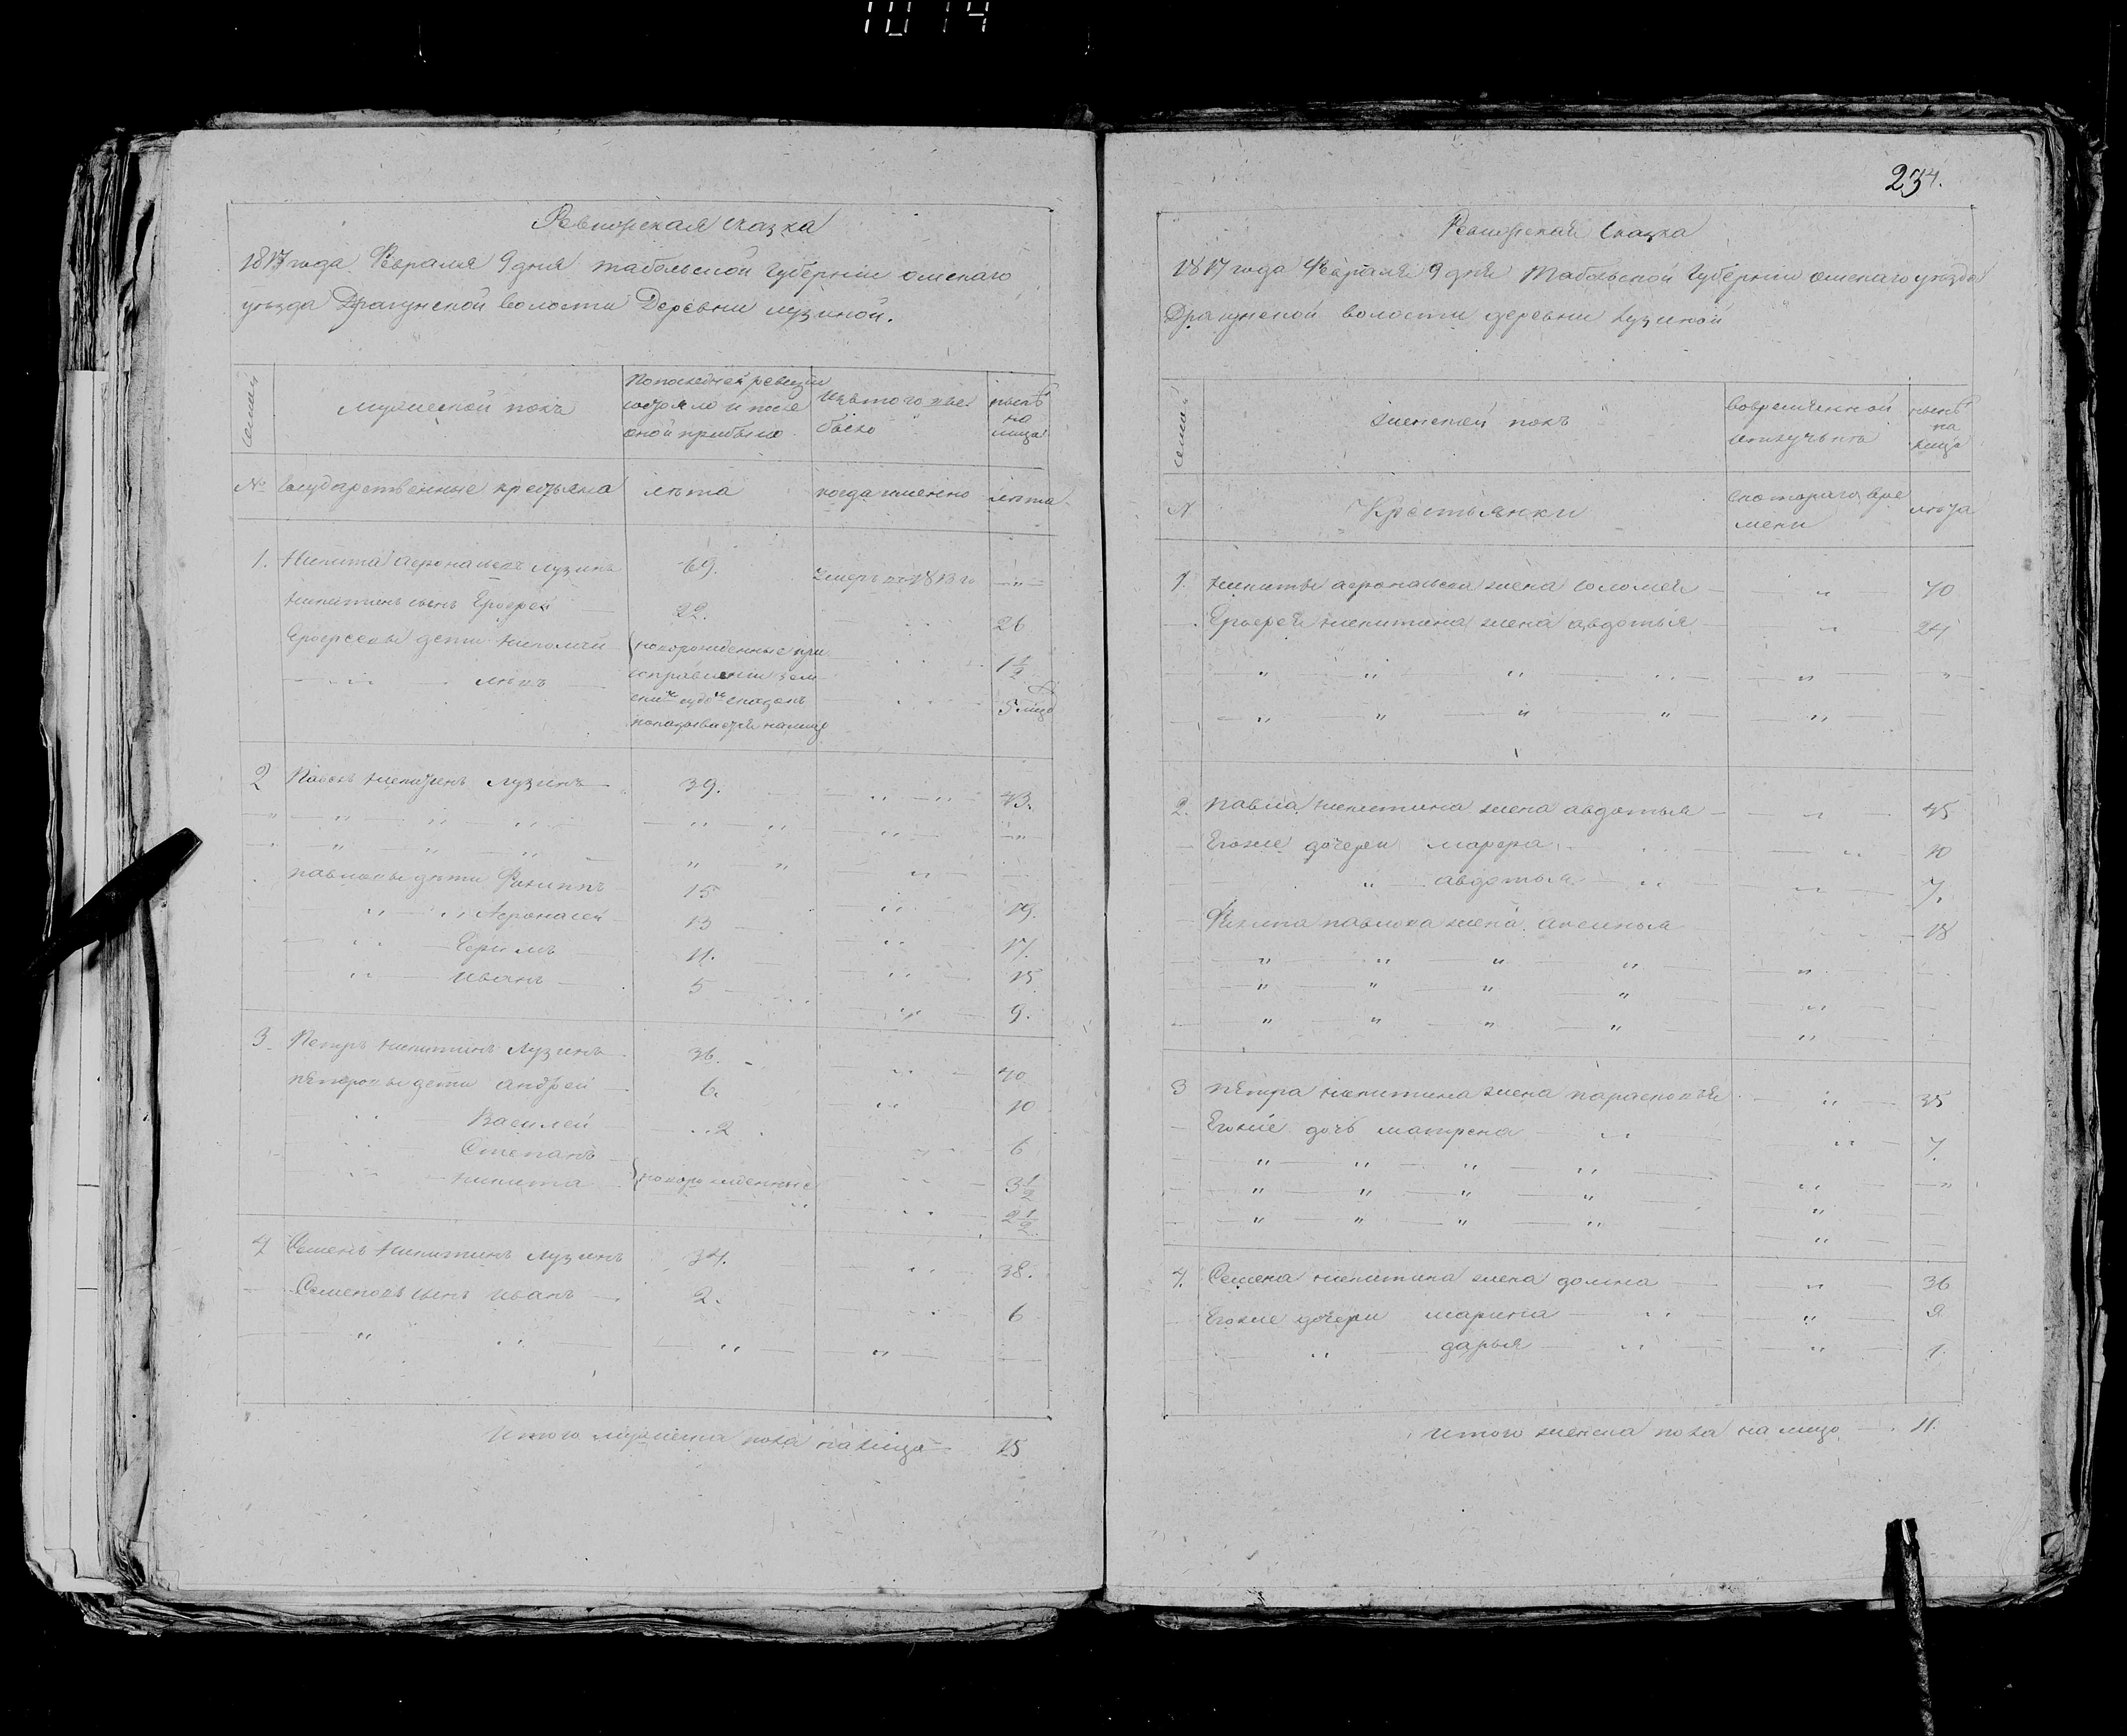 1014
Ревизская сказка
1817 года Февраля 9 дня табольской губернии омскаго
уезда Драгунской волости Деревни лузиной.
семьи
мужеской полъ
По последней ревизии
состояло и после
оной прибыло
Изътого числа
было
ныне
на
лицо
№ Государственные крестьяна лета когда именно лета
1. Никита афонасьевъ лузинъ 69. умеръ въ 1813 го
никитинъ сынъ Ерофей 22. 26
Ерофеевы дети николай новорожденные при 1 1/2
исправлении зем
ским судом сказокъ 5 лицо
показывается на лицо
2 Павелъ никитинъ лузинъ 39. 43.
павловы дети Филиппъ 15 19.
Афонасей 13 17.
Ефимъ 11. 15
иванъ 5 9.
3 Петръ никитинъ лузинъ 36. 40
петровы дети андрей 6. 10
Василей 2 6
Степанъ 3 1/2
никита новорожденные 2 1/2
4 Семенъ Никитинъ лузинъ 34. 38.
Семеновъ сынъ иванъ 2. 6
итого мужеска пола налицо 15
234.
Ревизская сказка
1817 года Февраля 9 дня Табольской губернии омскаго уезда
Драгунской волости деревни лузиной
семьи
женской полъ
вовременной
отлучьке
ныне
на
лицо
№ Крестьянки скотораго вре
мени лета
1. никиты афонасьева жена соломея 70
Ерофея никитина жена авдотья 24
2. павла никитина жена авдотья 45
Егоже дочери марфа 10
авдотья 7.
Филипа павлова жена аксинья 18
3 петра никитина жена парасковья 35
Егоже дочь матрена 7.
4. Семена никитина жена домна 36
Егоже дочери марина 9
дарья 1.
итого женска пола на лицо 11.